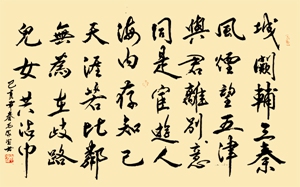 城闕輔三秦
風煙望五津
與君離別意
同是宦遊人
海内存知己
天涯若比鄰
無為在歧路
兒女共沾巾